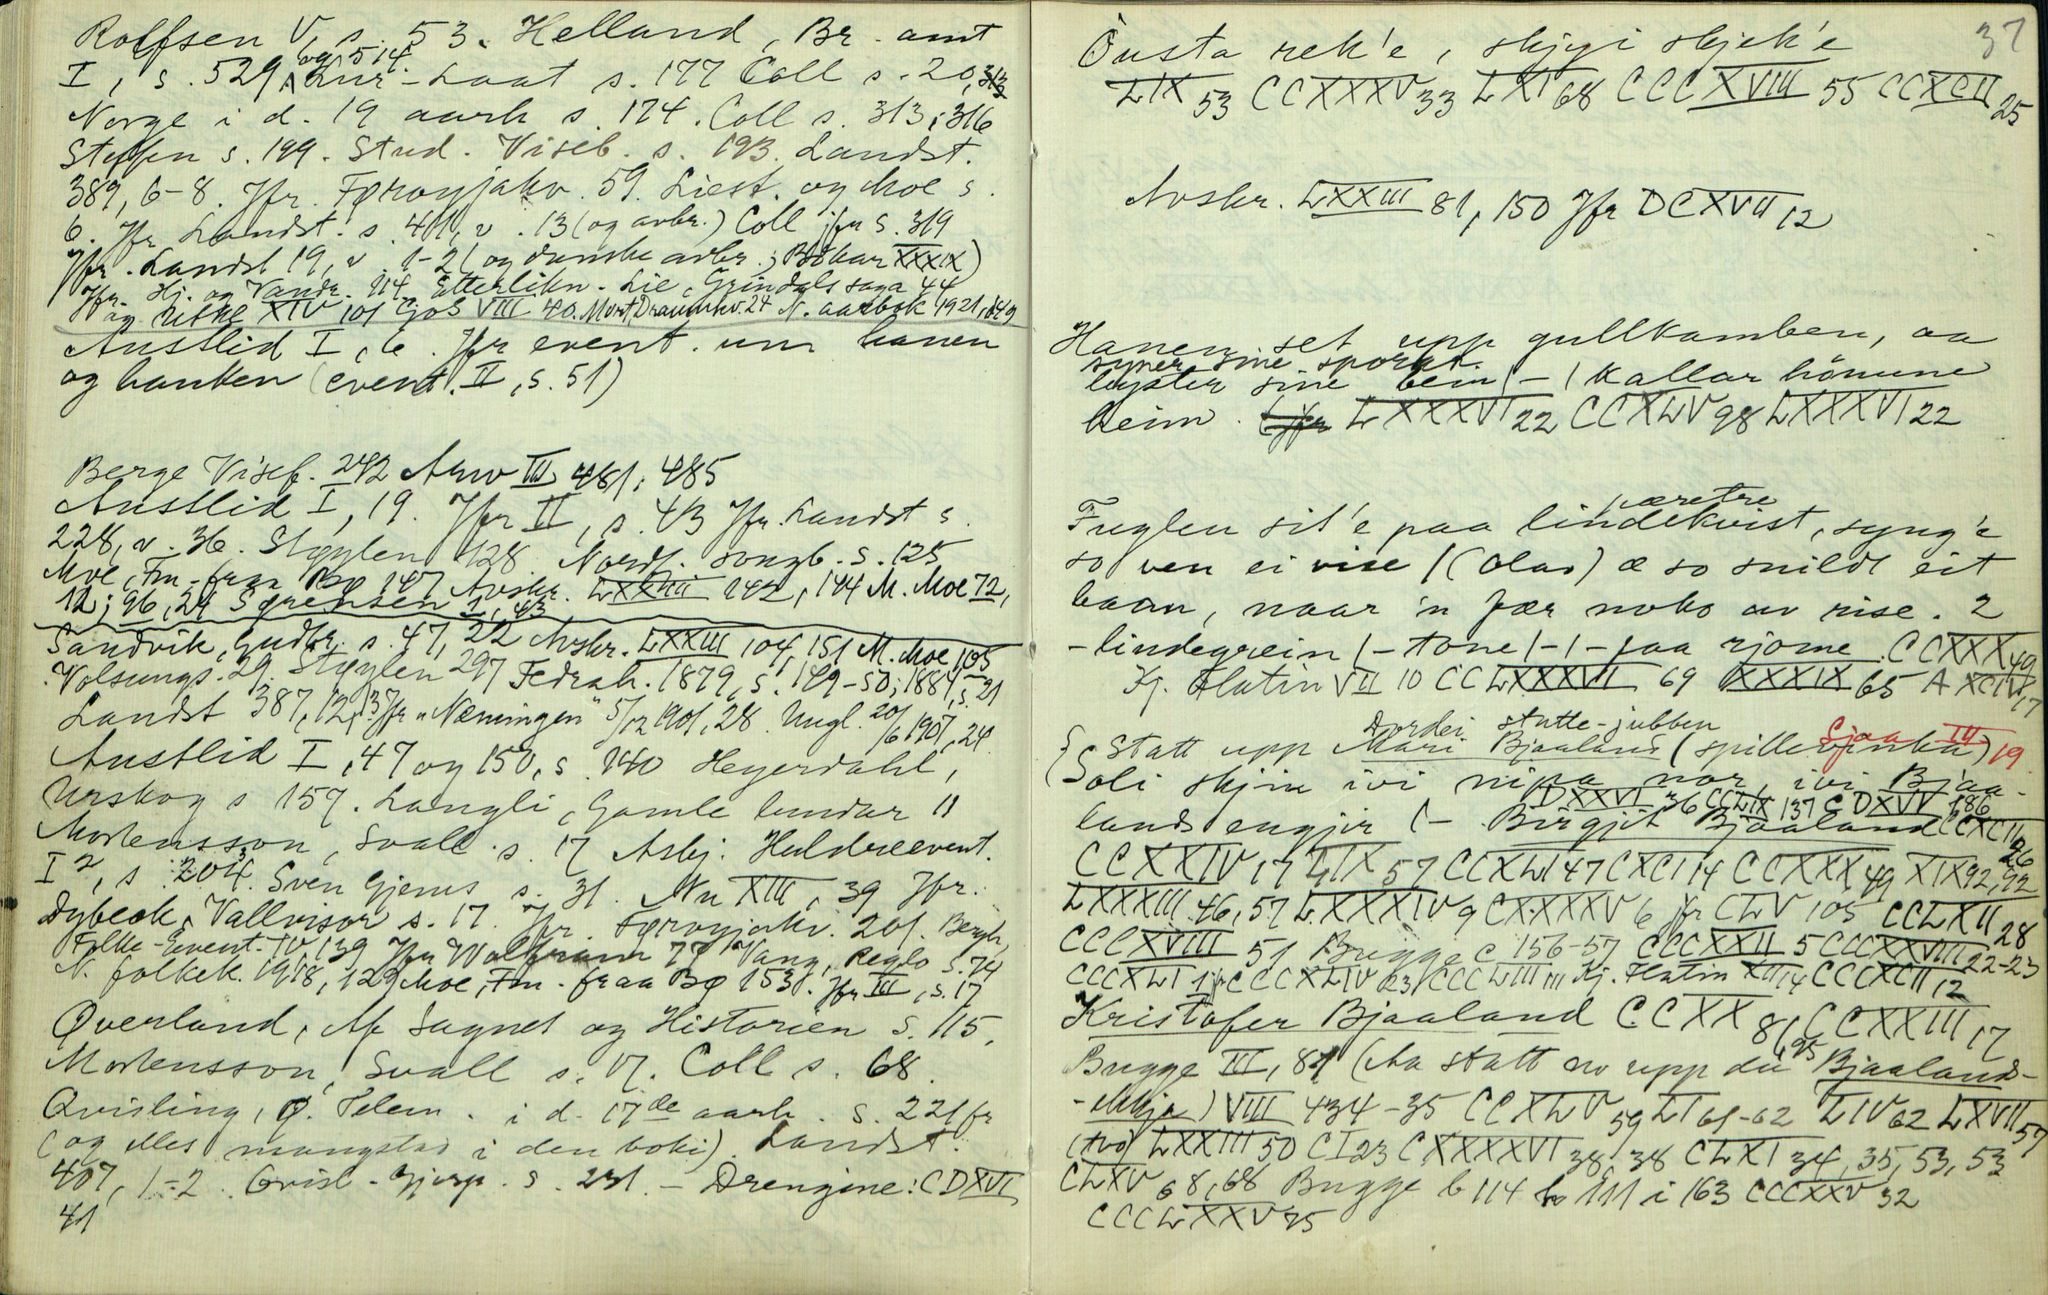 Rolfsen V, s. 53. Helland, Br. amt
I, s. 529 og 514. Lur-Laat s. 177 Coll s. 20, 313
Norge i d. 19 aarh s. 174. Coll s. 313; 316
Steffen s. 199. Stud. Viseb. s. 193. Landst.
389, 6-8. Jfr. Føroyjakv. 59. Liest. og Moe s.
6. Jfr Landst. s. 401, v. 13 (og avbr.) Coll jfr s. 319
Jfr. Landst 19, v 1-2 (og danske avbr.; Bókar XXXIX)
Jfr. Hj. og Vandr. 114 Etterlikn. Lie, Grindals saga 44
XIV 101 VIII 40. Mort, Draumkv. 24 N. aarbok 1921, 149
Austlid I, 6. Jfr event. um hanen
og hauken (event. II, s. 51)
Berge Visef. 242 Arw III 481; 485
Austlid I, 19. Jfr II, s. 43 Jfr. Landst s.
228, v. 36. Støylen 128. Nordf. songb. s. 125
Moe, Fm. fraa Bø 147 Avskr. LXXIII 142, 144 M. Moe 72,
12; 96, 24 Sørensen 1, 43
Sandvik, Gudbr. s. 47, 22 Avskr. LXXIII 104, 151 M. Moe 105
Volsungs. 29. Støylen 297 Fedrah. 1879, s. 149-50; 1884, s. 21
Landst 387, 12, 13 Jfr "Næmingen" 5/12 1901, 28. Ungl. 20/6 1907, 24.
Austlid I, 47 og 150, s. 140 Heyerdahl,
Urskog s 157. Langli, Gamle bundar 11
Mortensson, Svall s. 17 Asbj. Huldreevent.
I², s. 204. Sven Gjems s. 31. Nu XIII, 39 Jfr.
Dybeck, Vallvisor s. 17. Jfr. Føroyjakv. 201. Bergh,
Folke-Event. IV, 139 Jfr Wolfram 77 Vang, Reglo s. 74
N. folkek. 1918, 129 Moe, Fm. fraa Bø 153. Jfr III, s. 17
Øverland, Af Sagnet og Historien s. 115,
Mortensson, Svall s. 17. Coll s. 68.
Qvisling, Ø. Telem. i d. 17de aarh. s. 221 fr
(og elles mangstad i den boki). Landst.
407, 1-2. Qvisl. Gjerp. s. 231. – Drengine: CDXVI
41
37
Öusta rek'e, skjyi skjek'e
LIX 53 CCXXXV 33 LXI 68 CCCXVIII 55 CCXCII 25
Avskr. LXXIII 81, 150 Jfr DCXVII 12
Hanen set upp gullkamben, aa
syner sine sporar.
løyster sine bein / – / kallar hönune
heim. LXXXVI 22 CCXLV 98 LXXXVI 22
pæretre
Fuglen sit'e paa lindekvist, syng'e
so ven ei vise / (Olav) æ so snildt eit
baan, naar 'n fær noko av rise. 2
– lindegrein / – tone / – / – paa rjome. CCXXX 49
Kj. Flatin VII 10 CCLXXXVI 69 XXXIX 65 A XCIV, 17
Dordei statte-jubben Sjaa III 19
Statt upp Mari Bjaaland (spillevinka)
Soli skjin ivi nipa nor, ivi Bjaa-
DXXVI 36 CCLIX 137 C DXVV 186
lands engjir (– Birgjit Bjaaland CCXCII 26
CCXXIV 17 LIX 57 CCXLI 47 CXCI 14 CCXXX 49 XIX 92, 92
LXXXIII 46, 57 LXXXIV 9 CXXXXV 6 jfr CLV 105 CCLXII 28
CCCXVIII 51 Bugge c 156-57 CCCXXII 5 CCCXXVIII 22-23
CCCXLI 1 jfr CCCXLIV 63 CCCLIII 111 Kj. Flatin XII 14 CCCXCII 12
Kristofer Bjaaland CCXX 81, CCXXIII 17
Bugge III, 81 (Aa statt no upp du Bjaalands-
-Mkja) VIII 434-35 CCXLV 59 LI 61-62 LIV 62 LXVII 57
(tvo) LXXIII 50 CI 23 CXXXXVI 38, 38 CLXI 34, 35, 53, 53
CLXV 68, 68 Bugge b 114 h 111 i 163 CCCXXV 32
CCCLXXV 75